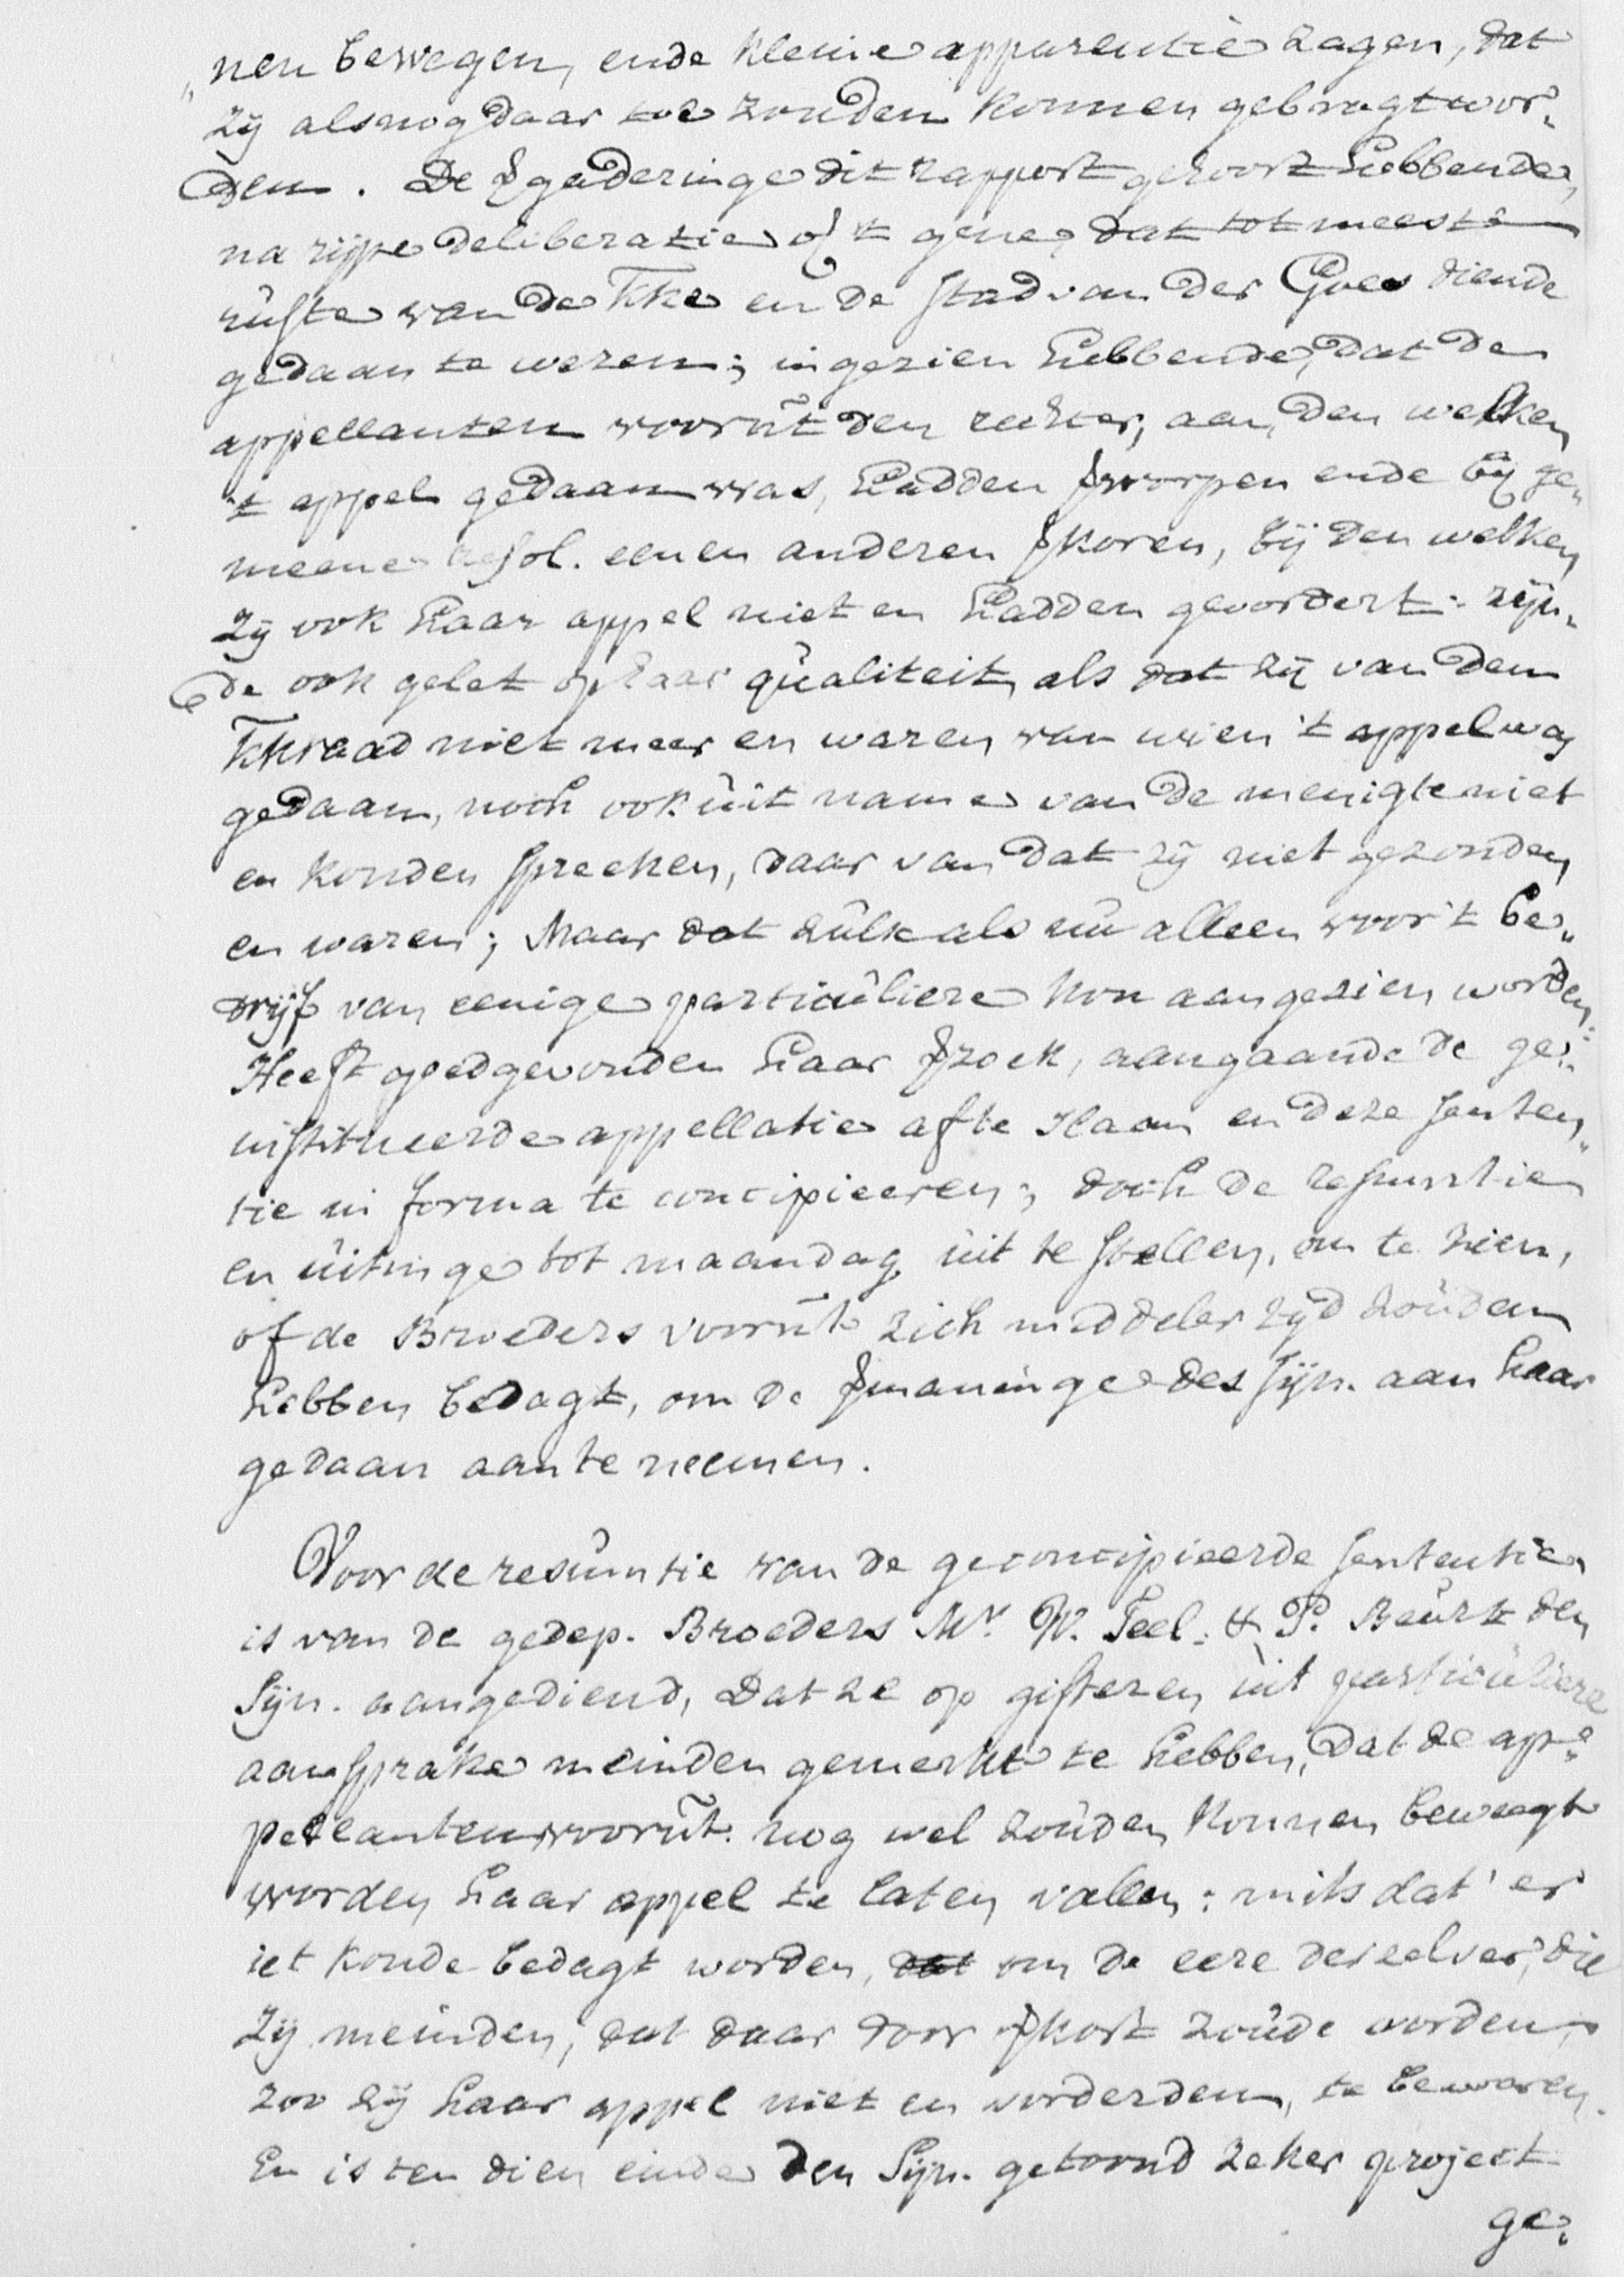 „nen bewegen, ende kleine apparentie zagen, dat
zij alsnog daar toe zouden konnen gebragt wor„
den. De ꝟgaderinge dit rapport gehoort hebbende,
na rijpe deliberatie oꝟ 't gene, dat tot meeste
ruste van de Kke en de stad van der Goes diende
gedaan te wezen; ingezien hebbende, dat de
appellanten voorn̄t den rechter, aan den welken
't appel gedaan was, hadden ꝟworpen ende bij ge„
meene resol. eenen anderen ꝟkoren, bij den welken
zij ook haar appel niet en hadden gevordert: zijn„
de ook gelet op haar qualiteit, als dat zij van den
Kkraad niet meer en waren, van wien 't appel was
gedaan, noch ook uit name van de menigte niet
en konden spreeken, daar van dat zij niet gezonden
en waren; Maar dat zulk als nu alleen voor 't be„
drijf van eenige particuliere kon aangezien worden:
Heeft goedgevonden haar ꝟzoek, aangaande de ge„
institueerde appellatie af te slaan en deze senten„
tie in forma te concipieeren; doch de resumtie
en uitinge tot maandag uit te stellen, om te zien,
of de Broeders voorn̄t zich middeler tijd zouden
hebben bedagt, om de ꝟmaninge des Sijn. aan haar
gedaan aan te neemen.
Voor de resumtie van de geconcipieerde sententie
is van de gedep. Broeders Mr. W. Teel. & P. Beurt den
Sijn. aangediend, dat ze op gisteren uit particuliere
aansprake meinden gemerkt te hebben, dat de ap„
pellanten voorn̄t. nog wel zouden konnen beweegt
worden haar appel te laten vallen: mits dat 'er
iet konde bedagt worden, dat om de eere deszelver, die
zij meinden, dat daar door ꝟkort zoude worden,
zoo zij haar appel niet en vorderden, te bewaren.
En is ten dien einde den Sijn. getoond zeker project
ge„